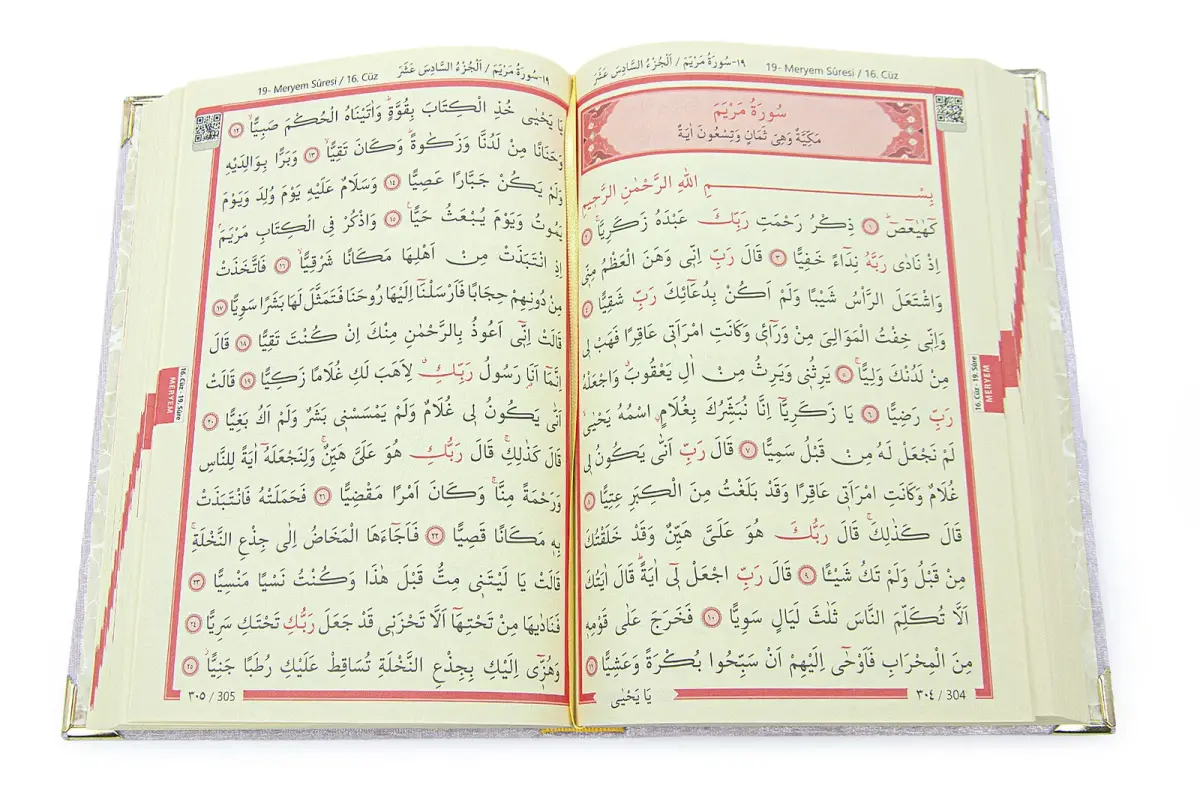 19- Meryem Sûresi / 16. Cüz
١٩-سُورَةُ مَرْيَمَ / اَلْجُزْءُ السَّادِسَ عَشَرَ
سُورَةُ مَرْيَمَ
مَكِّيَّةٌ وَهِيَ ثَمَانٍ وَتِسْعُونَ اٰيَةً
بِسْمِ اللّٰهِ الرَّحْمٰنِ الرَّحِيمِ
كٓهٰيٰعٓصٓ ۚ ﴿١﴾ ذِكْرُ رَحْمَتِ رَبِّكَ عَبْدَهُ زَكَرِيَّا ۚ ﴿٢﴾
اِذْ نَادٰى رَبَّهُ نِدَٓاءً خَفِيًّا ﴿٣﴾ قَالَ رَبِّ اِنّ۪ي وَهَنَ الْعَظْمُ مِنّ۪ي
وَاشْتَعَلَ الرَّأْسُ شَيْبًا وَلَمْ اَكُنْ بِدُعَٓائِكَ رَبِّ شَقِيًّا ﴿٤﴾
وَاِنّ۪ي خِفْتُ الْمَوَالِيَ مِنْ وَرَٓائ۪ي وَكَانَتِ امْرَاَت۪ي عَاقِرًا فَهَبْ ل۪ي
مِنْ لَدُنْكَ وَلِيًّا ۙ ﴿٥﴾ يَرِثُن۪ي وَيَرِثُ مِنْ اٰلِ يَعْقُوبَ وَاجْعَلْهُ
رَبِّ رَضِيًّا ﴿٦﴾ يَا زَكَرِيَّٓا اِنَّا نُبَشِّرُكَ بِغُلَامٍ اسْمُهُ يَحْيٰى
لَمْ نَجْعَلْ لَهُ مِنْ قَبْلُ سَمِيًّا ﴿٧﴾ قَالَ رَبِّ اَنّٰى يَكُونُ ل۪ي
غُلَامٌ وَكَانَتِ امْرَاَت۪ي عَاقِرًا وَقَدْ بَلَغْتُ مِنَ الْكِبَرِ عِتِيًّا ﴿٨﴾
قَالَ كَذٰلِكَ ۚ قَالَ رَبُّكَ هُوَ عَلَيَّ هَيِّنٌ وَقَدْ خَلَقْتُكَ
مِنْ قَبْلُ وَلَمْ تَكُ شَيْـًٔا ﴿٩﴾ قَالَ رَبِّ اجْعَلْ ل۪ٓي اٰيَةً ۜ قَالَ اٰيَتُكَ
اَلَّا تُكَلِّمَ النَّاسَ ثَلٰثَ لَيَالٍ سَوِيًّا ﴿١٠﴾ فَخَرَجَ عَلٰى قَوْمِه۪
مِنَ الْمِحْرَابِ فَاَوْحٰٓى اِلَيْهِمْ اَنْ سَبِّحُوا بُكْرَةً وَعَشِيًّا ﴿١١﴾
٣٠٤ / 304
يَا يَحْيٰى
16. Cüz - 19. Sûre
MERYEM
19- Meryem Sûresi / 16. Cüz
١٩-سُورَةُ مَرْيَمَ / اَلْجُزْءُ السَّادِسَ عَشَرَ
يَا يَحْيٰى خُذِ الْكِتَابَ بِقُوَّةٍ ۜ وَاٰتَيْنَاهُ الْحُكْمَ صَبِيًّا ۙ ﴿١٢﴾
وَحَنَانًا مِنْ لَدُنَّا وَزَكٰوةً ۜ وَكَانَ تَقِيًّا ۙ ﴿١٣﴾ وَبَرًّا بِوَالِدَيْهِ
وَلَمْ يَكُنْ جَبَّارًا عَصِيًّا ﴿١٤﴾ وَسَلَامٌ عَلَيْهِ يَوْمَ وُلِدَ وَيَوْمَ
يَمُوتُ وَيَوْمَ يُبْعَثُ حَيًّا ۟ ﴿١٥﴾ وَاذْكُرْ فِي الْكِتَابِ مَرْيَمَ ۢ
اِذِ انْتَبَذَتْ مِنْ اَهْلِهَا مَكَانًا شَرْقِيًّا ۙ ﴿١٦﴾ فَاتَّخَذَتْ
مِنْ دُونِهِمْ حِجَابًا فَاَرْسَلْنَٓا اِلَيْهَا رُوحَنَا فَتَمَثَّلَ لَهَا بَشَرًا سَوِيًّا ﴿١٧﴾
قَالَتْ اِنّ۪ٓي اَعُوذُ بِالرَّحْمٰنِ مِنْكَ اِنْ كُنْتَ تَقِيًّا ﴿١٨﴾ قَالَ
اِنَّمَٓا اَنَا۬ رَسُولُ رَبِّكِ ۗ لِاَهَبَ لَكِ غُلَامًا زَكِيًّا ﴿١٩﴾ قَالَتْ
اَنّٰى يَكُونُ ل۪ي غُلَامٌ وَلَمْ يَمْسَسْن۪ي بَشَرٌ وَلَمْ اَكُ بَغِيًّا ﴿٢٠﴾
قَالَ كَذٰلِكِ ۚ قَالَ رَبُّكِ هُوَ عَلَيَّ هَيِّنٌ ۚ وَلِنَجْعَلَهُٓ اٰيَةً لِلنَّاسِ
وَرَحْمَةً مِنَّا ۚ وَكَانَ اَمْرًا مَقْضِيًّا ﴿٢١﴾ فَحَمَلَتْهُ فَانْتَبَذَتْ
بِه۪ مَكَانًا قَصِيًّا ﴿٢٢﴾ فَاَجَٓاءَهَا الْمَخَاضُ اِلٰى جِذْعِ النَّخْلَةِ ۚ
قَالَتْ يَا لَيْتَن۪ي مِتُّ قَبْلَ هٰذَا وَكُنْتُ نَسْيًا مَنْسِيًّا ﴿٢٣﴾
فَنَادٰيهَا مِنْ تَحْتِهَٓا اَلَّا تَحْزَن۪ي قَدْ جَعَلَ رَبُّكِ تَحْتَكِ سَرِيًّا ﴿٢٤﴾
وَهُزّ۪ٓي اِلَيْكِ بِجِذْعِ النَّخْلَةِ تُسَاقِطْ عَلَيْكِ رُطَبًا جَنِيًّا ۘ ﴿٢٥﴾
٣٠٥ / 305
16. Cüz - 19. Sûre
MERYEM